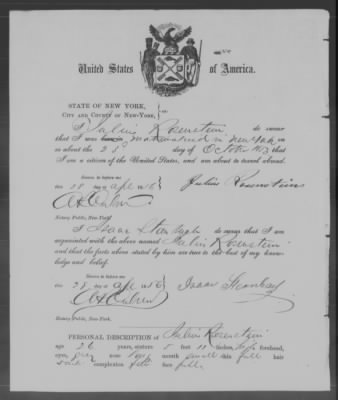 United States of America.
STATE OF NEW YORK,
CITY AND COUNTY OF NEW-YORK, } ss:
I Julius Rosenstein do swear
that I was born in naturalized in New York on
or about the 25 day of October 1863 that
I am a citizen of the United States, and am about to travel abroad.
Sworn to before me
this 28 day of Apl 1865 Julius Rosenstein
Notary Public, New York.
I Isaac do swear that I am
acquainted with the above named Julius Rosenstein
and that the facts above stated by him are true to the best of my know-
ledge and belief.
Sworn to before me
this 28 day of Apl 186 Isaac
Notary Public, New-York.
PERSONAL DESCRIPTION of Julius Rosenstein
age 26 years, stature 5 feet 11 inches, high forehead,
eyes, grey nose large mouth small chin full hair
complexion face full